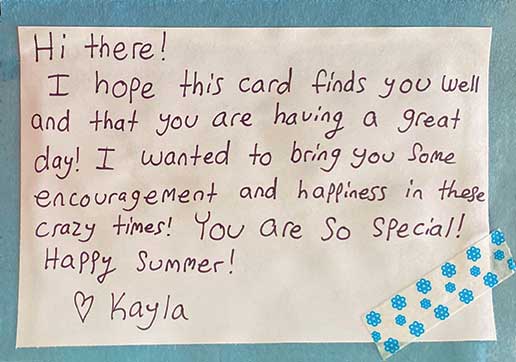 Hi there!
I hope this card finds you well
and that you are having a great
day! I wanted to bring you some
encouragement and happiness in these
crazy times! You are so special!
Happy Summer!
♡ Kayla